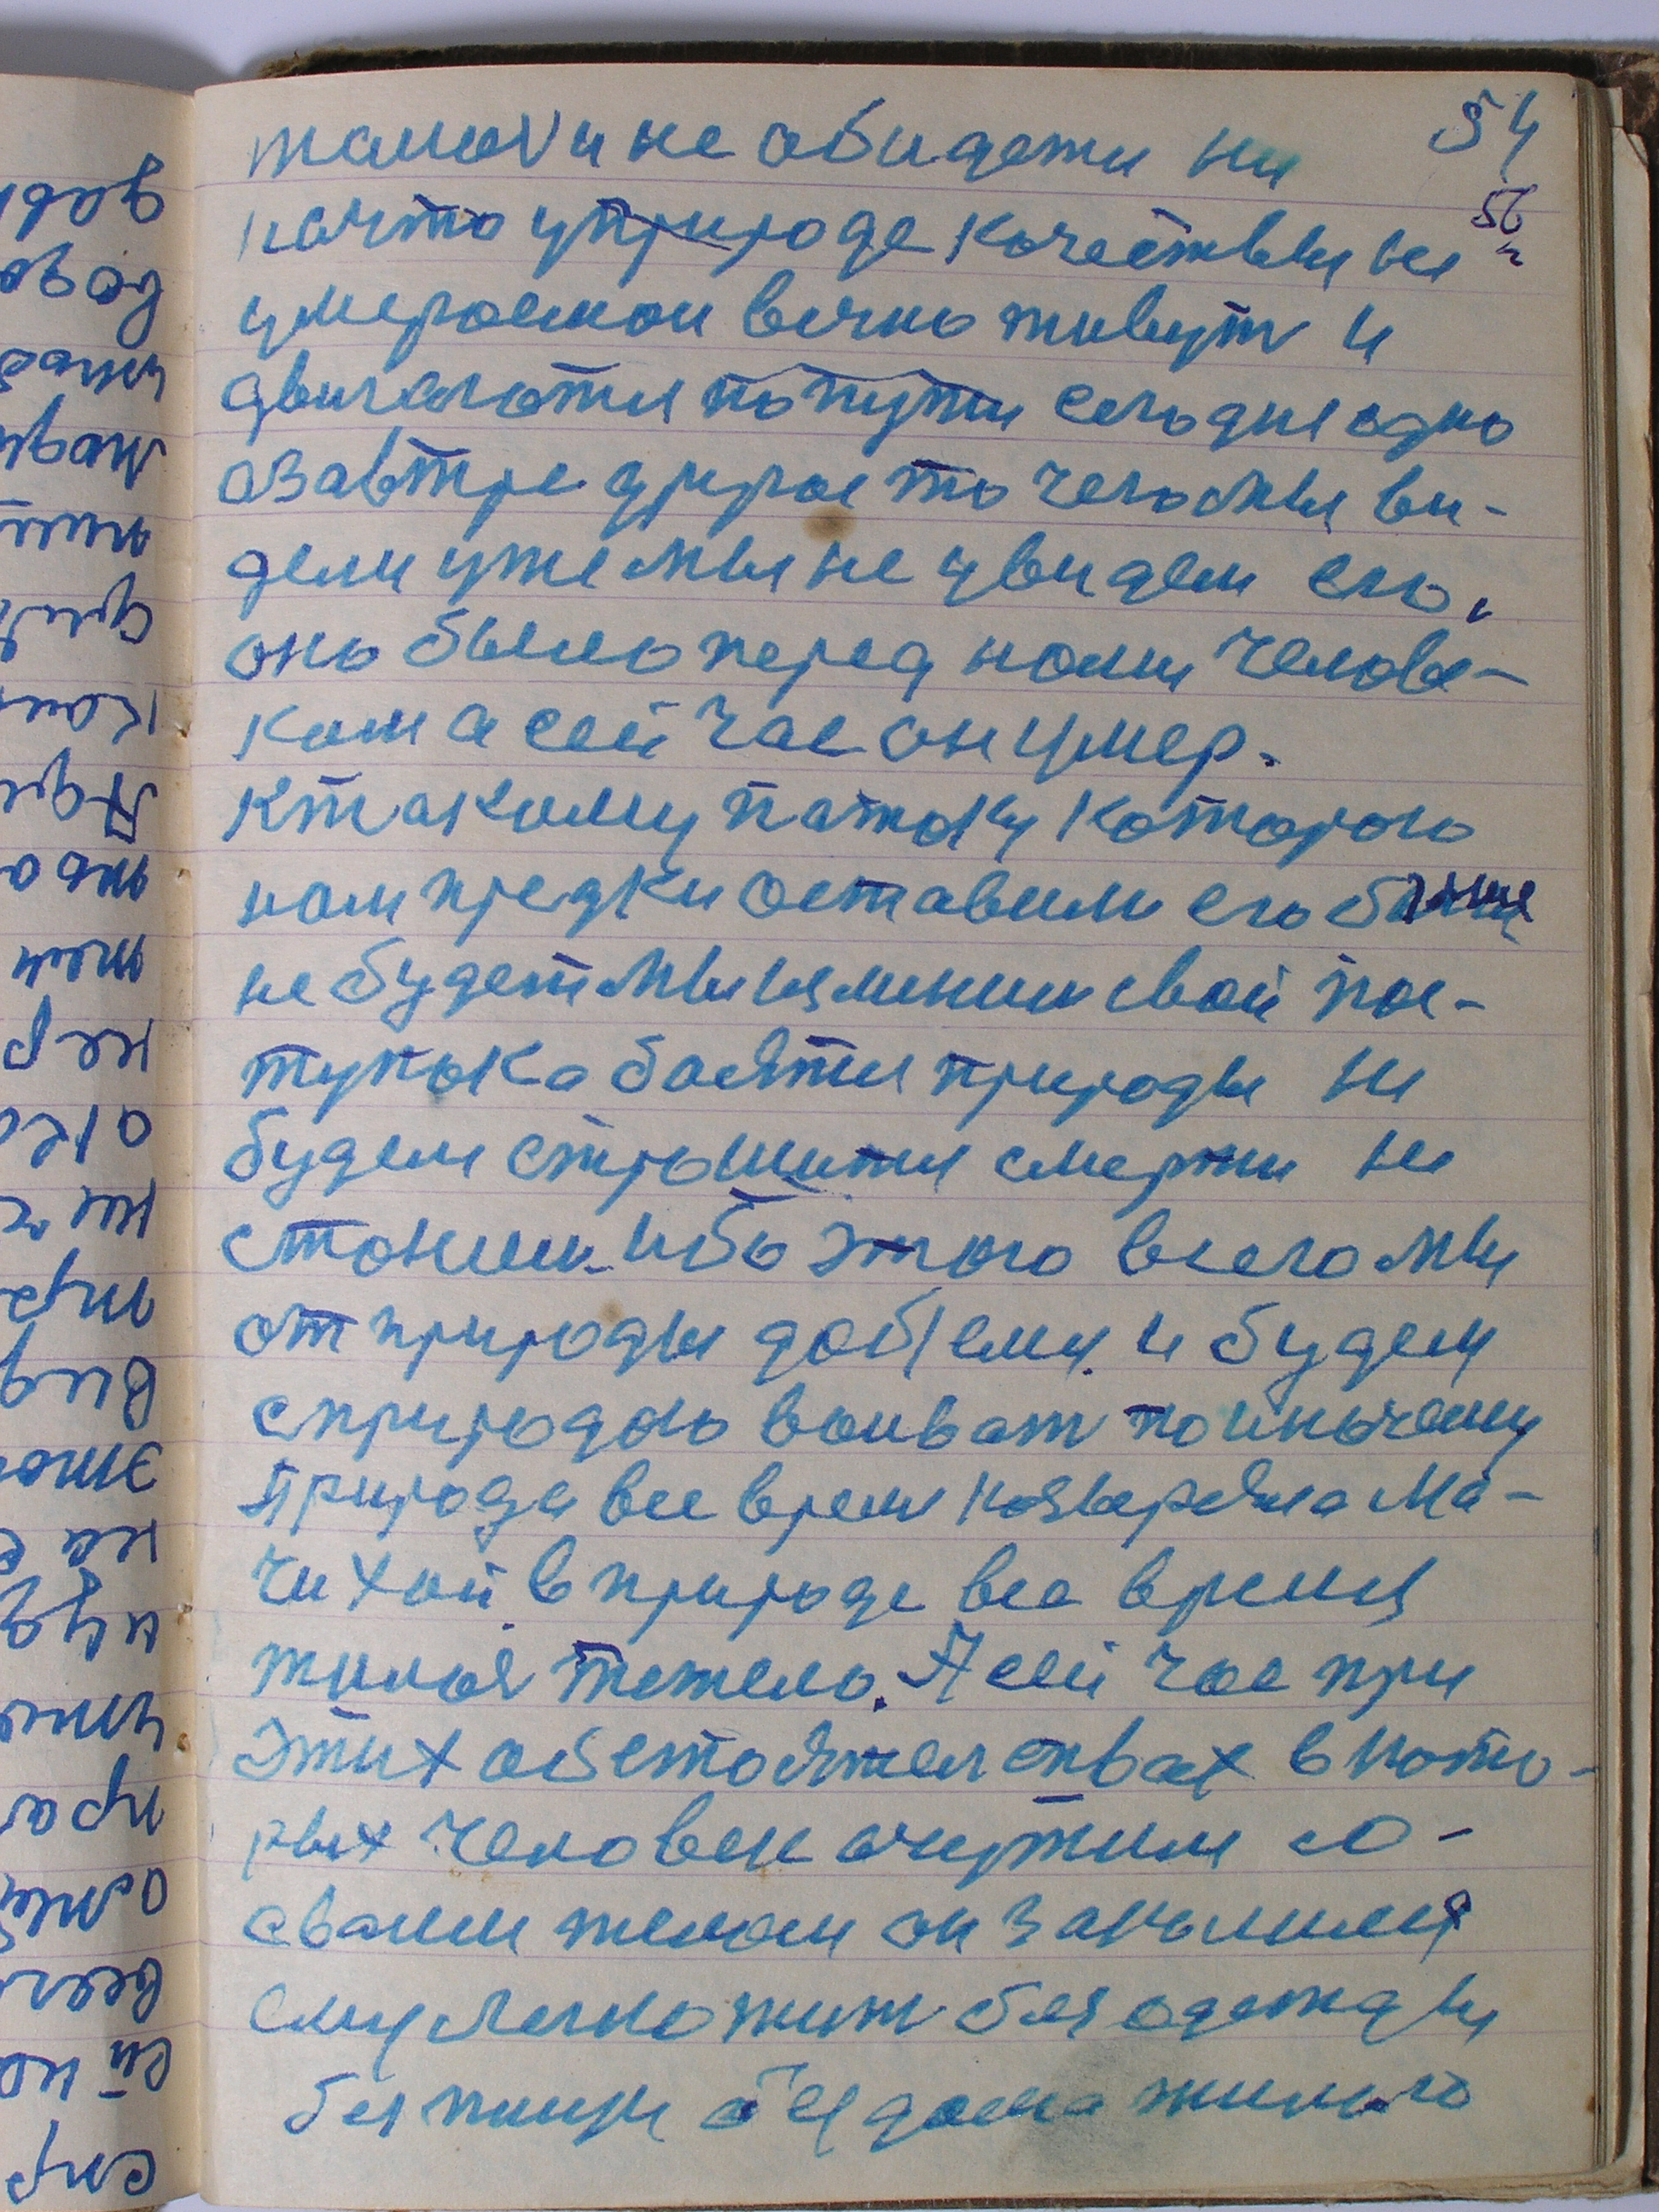 54
25
такого и не обидети ни
качто у природе качествы ни
умераемои вечно живут и
двигаются по пути сегодня одно
азавтре другое то чего мы ви-
дели уже мы не увидем его.
оно было перед нами челове-
ком а сей час он умер.
ктакому патоку которого
нам предки оставили его больше
не будет мы изменим свой пос-
тупок а боятся природы ни
будем страшится смерти ни
станим. ибо этого всего мы
от природы добьемся и будем
сприродою воиват по иночему
Природа все время назыврема Ма-
чихой в природе все время
жилося тежело. А сей час при
этих обстоятелствах в кото-
рых человек очутился со-
своим телом он закалился
ему легко жит без одежды
без пищи без дома жилого